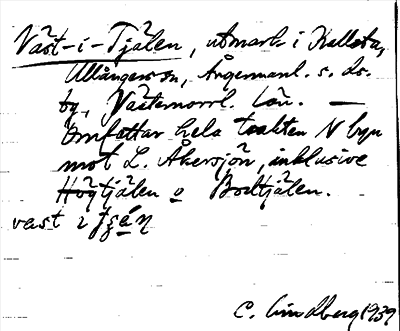 Väst-i-Tjälen, utmark i Kallsta,
Ullångers sn, Ångermanl. s. ds.
by, Västernorrl. län. —
Omfattar hela trakten N byn
mot L. Åkersjön, inklusive
Högtjälen o Bodtjälen.
väst i
C. Lindberg 1939